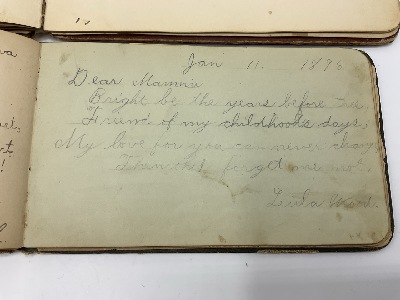 Jan 11. 189
Dear Mamie
Bright be the years before
Friend of my childhoods days,
My love for you can never
forget me not.
Lula